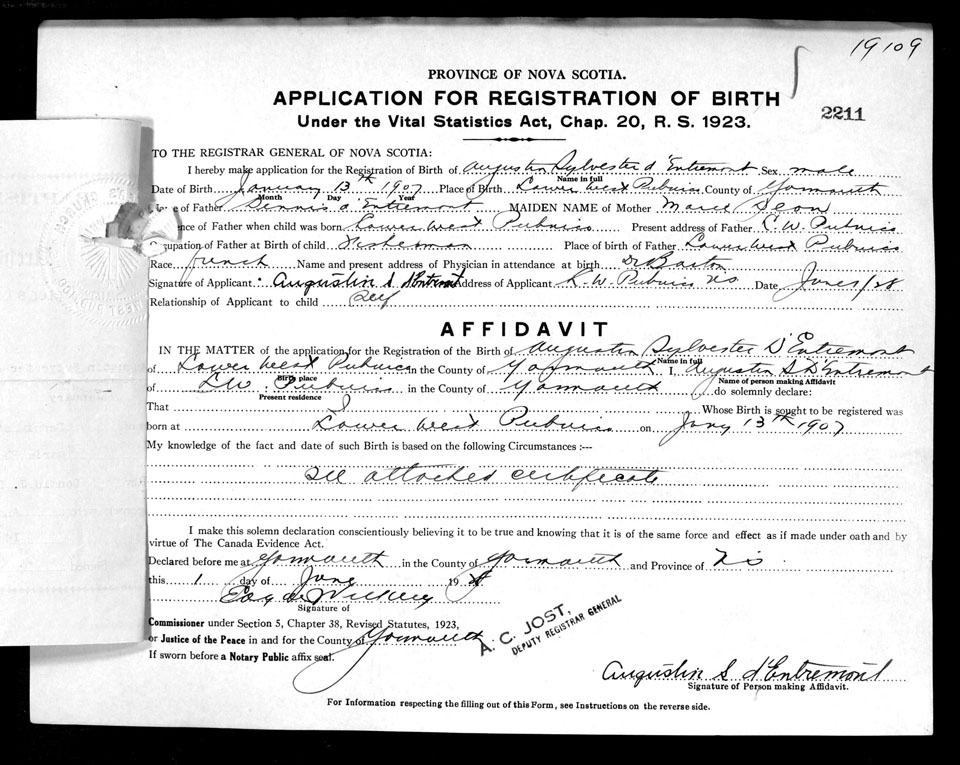 19109
PROVINCE OF NOVA SCOTIA.
APPLICATION FOR REGISTRATION OF BIRTH
2211
Under the Vital Statistics Act, Chap. 20, R. S. 1923.
TO THE REGISTRAR GENERAL OF NOVA SCOTIA:
I hereby make application for the Registration of Birth of Augustin Sylvester d'Entremont Sex male
Name in full
Date of Birth January 13th 1907 Place of Birth Lower West Pubnico County of Yarmouth
Month Day Year
of Father Dennis d'Entremont MAIDEN NAME of Mother Marie Deon
ence of Father when child was born Lower West Pubnico Present address of Father L. W. Pubnico
Occupation of Father at Birth of child Fisherman Place of birth of Father Lower West Pubnico
Race french Name and present address of Physician in attendance at birth Dr Barton
Signature of Applicant Augustin S d'Entremont Address of Applicant L. W. Pubnico NS Date June 1/28
Relationship of Applicant to child self
AFFIDAVIT
IN THE MATTER of the application for the Registration of the Birth of Augustin Sylvester D'Entremont
Name in full
of Lower West Pubnico in the County of Yarmouth I, Augustin S D'Entremont
Birth place Name of person making Affidavit
of L W. Pubnico in the County of Yarmouth do solemnly declare:
Present residence
That I Whose Birth is sought to be registered was
born at Lower West Pubnico on Jany 13th 1907
My knowledge of the fact and date of such Birth is based on the following Circumstances :---
see attached certificate
I make this solemn declaration conscientiously believing it to be true and knowing that it is of the same force and effect as if made under oath and by
virtue of The Canada Evidence Act.
Declared before me at Yarmouth in the County of Yarmouth and Province of NS
this 1 day of June 19
Signature of
Commissioner under Section 5, Chapter 38, Revised Statutes, 1923,
or Justice of the Peace in and for the County of Yarmouth
If sworn before a Notary Public affix seal.
A. C. JOST,
DEPUTY REGISTRAR GENERAL
Augustin S d'Entremont
Signature of Person making Affidavit.
For Information respecting the filling out of this Form, see Instructions on the reverse side.